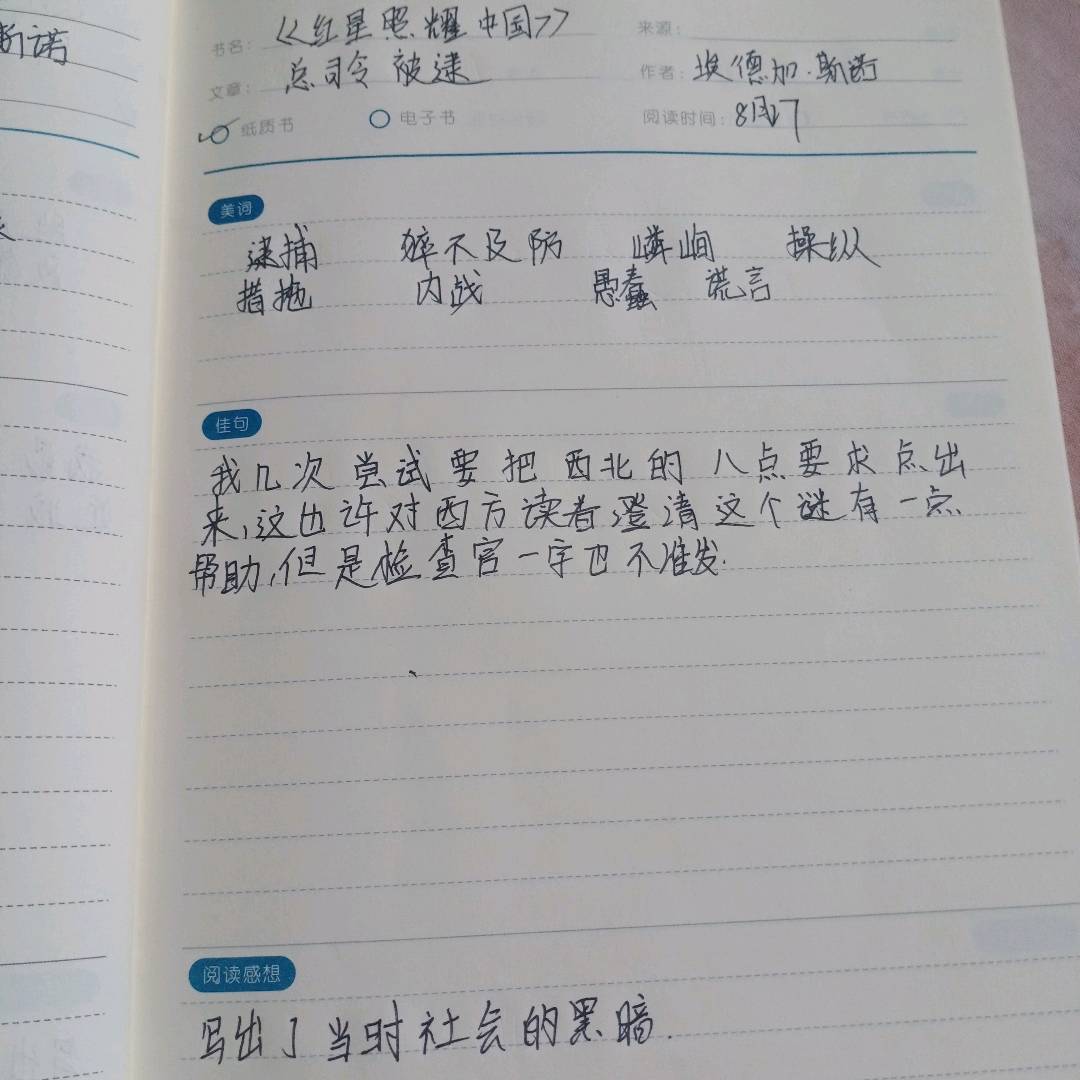 斯诺
书名: 《红星照耀中国》
来源:
文章: 总司令被逮
作者: 埃德加·斯诺
纸质书 电子书
阅读时间: 8月17
美词
逮捕 猝不及防 嶙峋 操纵
措施 内战 愚蠢 谎言
佳句
我几次尝试要把西北的八点要求点出
来,这也许对西方读者澄清这个谜有一点
帮助,但是检查官一字也不准发.
阅读感想
写出了当时社会的黑暗.